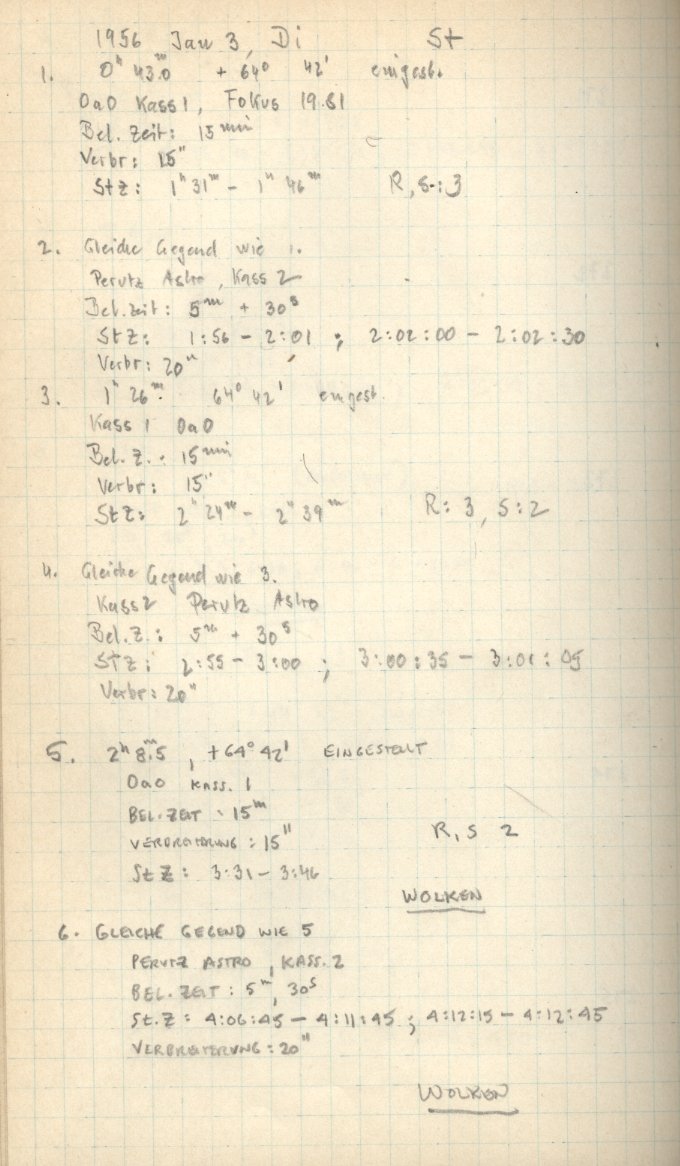 1956 Jan 3, Di St
1. 0ʰ 43.0ᵐ + 64° 42' eingest.
OaO Kass 1, Fokus 19.61
Bel. Zeit: 15 min
Verbr: 15"
StZ: 1ʰ 31ᵐ - 1ʰ 46ᵐ R, S: 3
2. Gleiche Gegend wie 1.
Perutz Astro, Kass 2
Bel. zeit: 5ᵐ + 30ˢ
StZ: 1:56 - 2:01 ; 2:02:00 - 2:02:30
Verbr: 20"
3. 1ʰ 26ᵐ. 64° 42' eingest.
Kass 1 OaO
Bel. Z.: 15 min
Verbr: 15"
StZ: 2ʰ 24ᵐ - 2ʰ 39ᵐ R: 3, S: 2
4. Gleiche Gegend wie 3.
Kass 2 Perutz Astro
Bel. Z.: 5ᵐ + 30ˢ
STZ: 2:55 - 3:00 ; 3:00:35 - 3:01:05
Verbr: 20"
5. 2ʰ 8ᵐ.5, +64° 42' EINGESTELLT
OaO KASS. 1
BEL. ZEIT: 15ᵐ
VERBREITERUNG: 15" R, S 2
StZ: 3:31 - 3:46
WOLKEN
6. GLEICHE GEGEND WIE 5
PERUTZ ASTRO, KASS. 2
BEL. ZEIT: 5ᵐ, 30ˢ
St.Z: 4:06:45 - 4:11:45 ; 4:12:15 - 4:12:45
VERBREITERUNG: 20"
WOLKEN